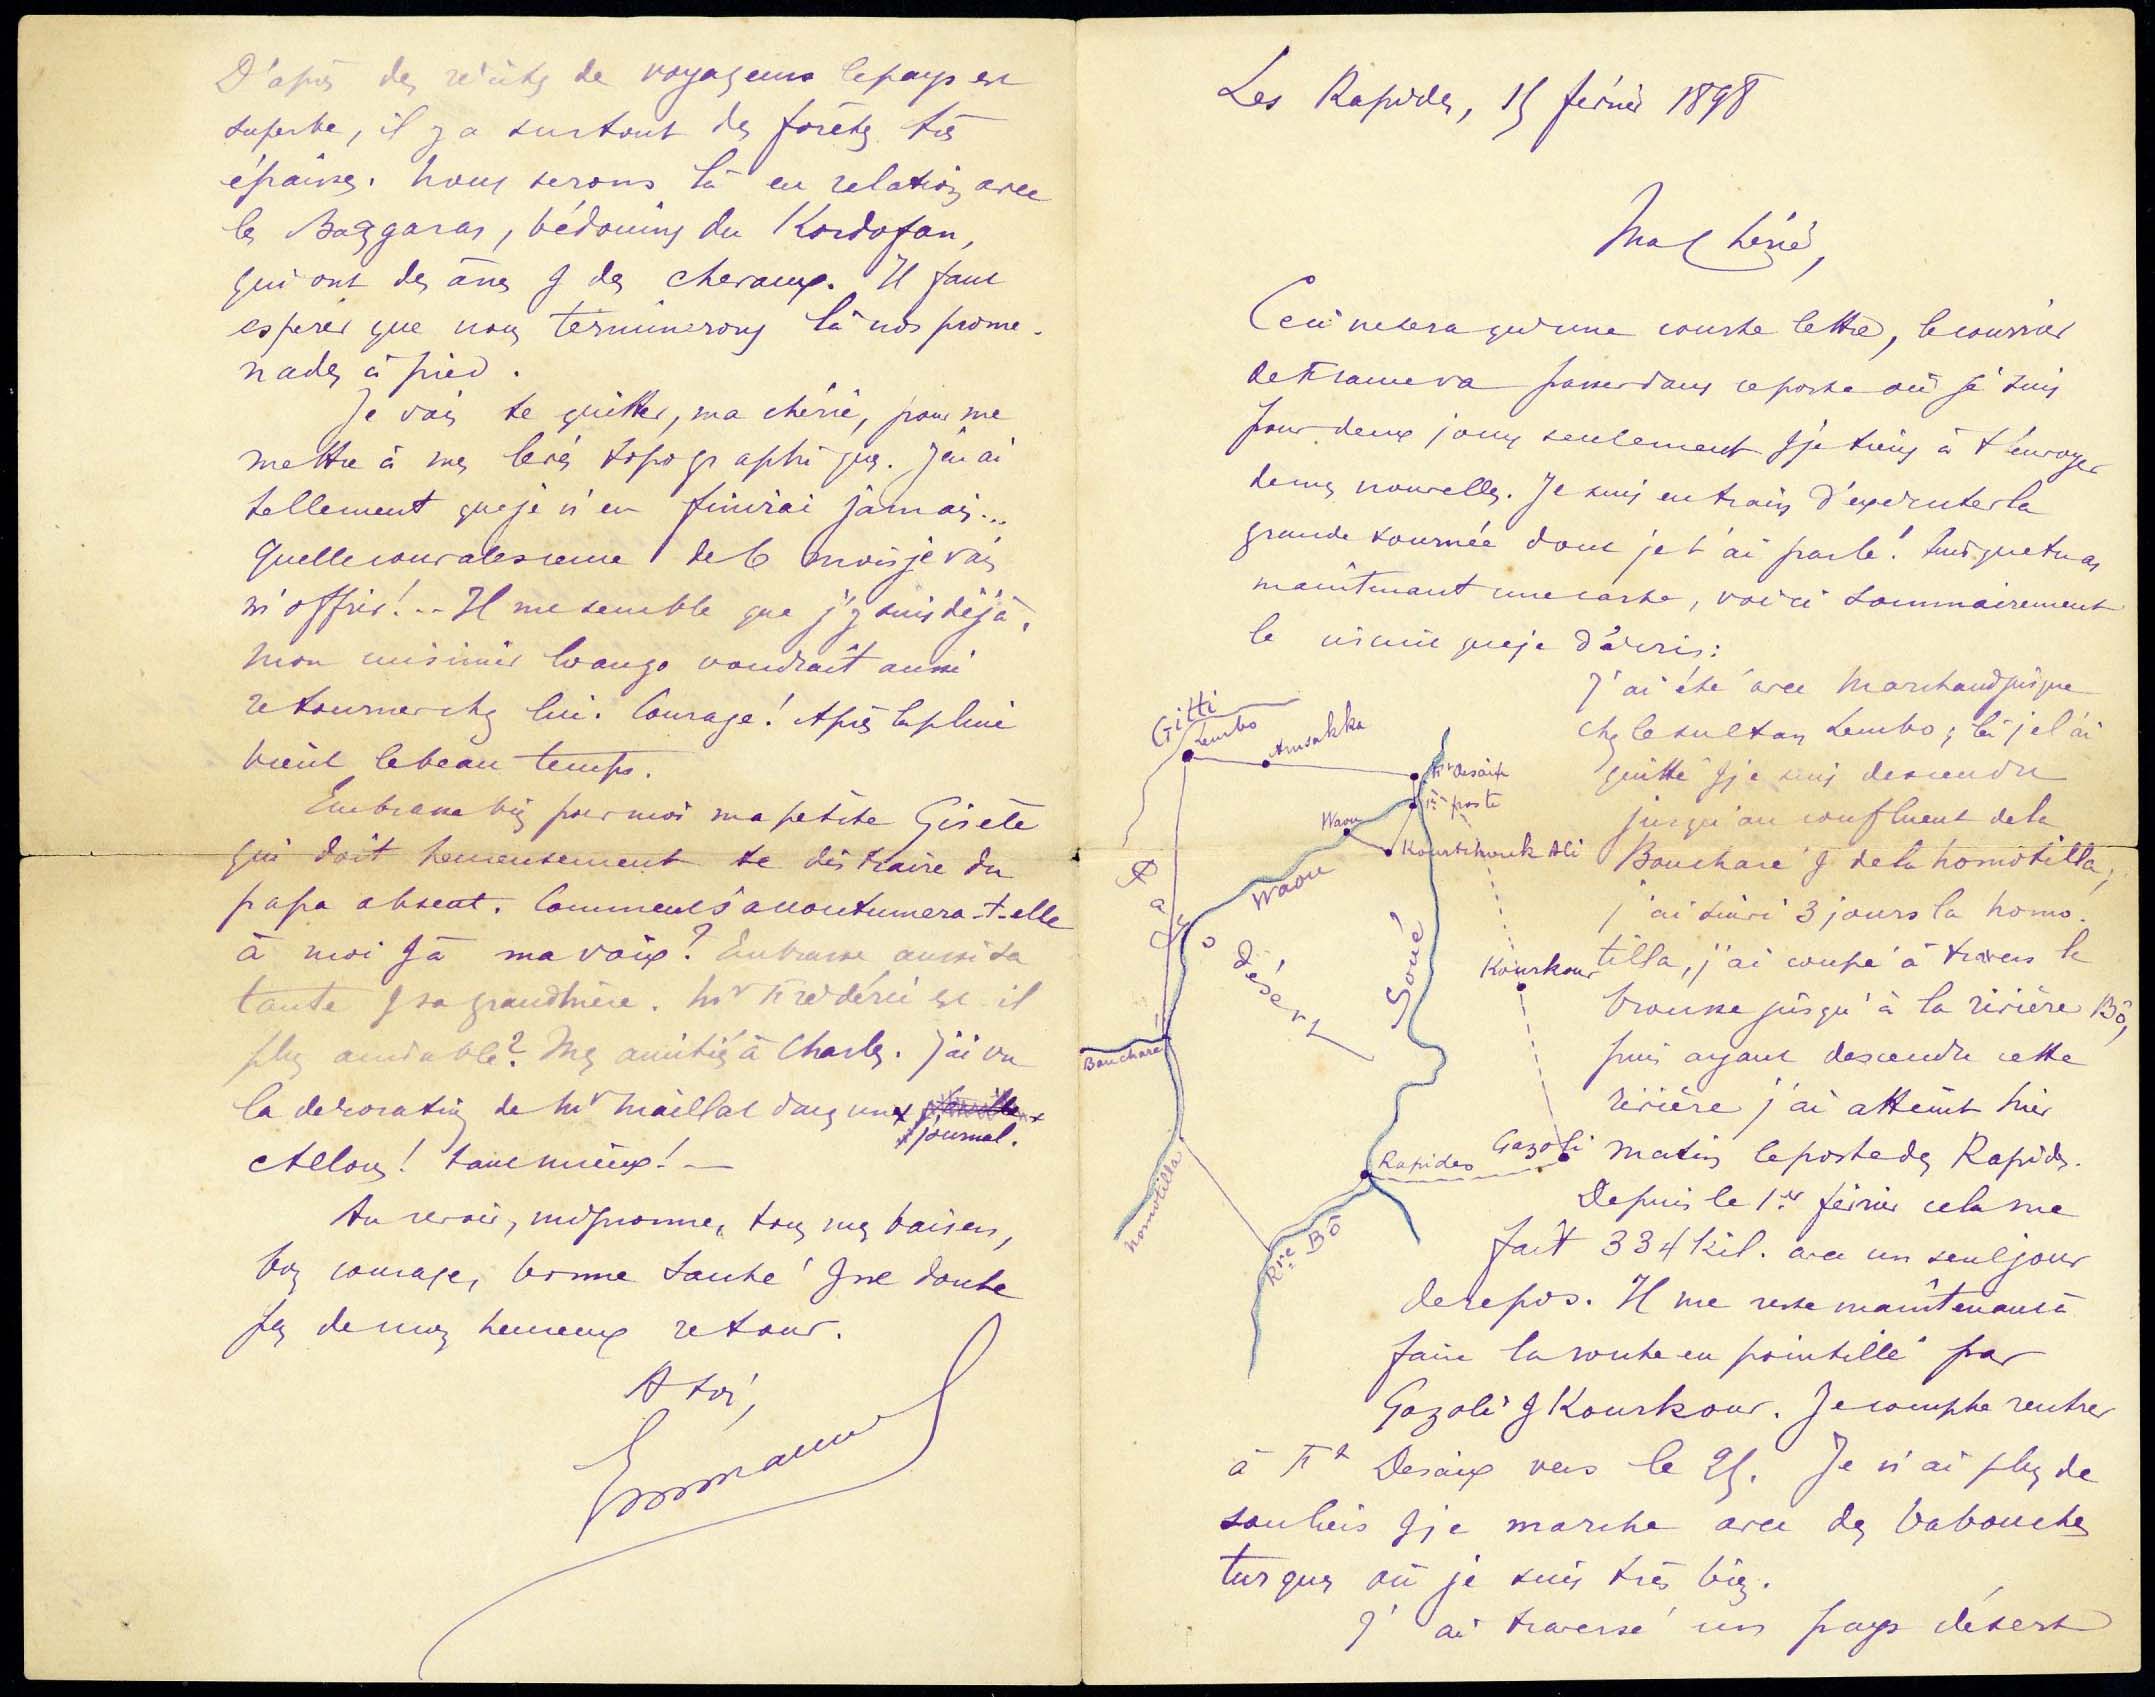 Les Rapides, 15 février 1898
Ma chérie,
Ceci ne sera qu'une courte lettre, le courrier
de France va passer dans ce poste où je suis
pour deux jours seulement & je tiens à t'envoyer
de mes nouvelles. Je suis en train d'exécuter la
grande tournée dont je t'ai parlé! Puisque tu as
maintenant une carte, voici sommairement
le circuit que je décris:
J'ai été avec Marchand jusque
chez le sultan Tembo; là je l'ai
quitté & je suis descendu
jusqu'au confluent de la
Bouchare & de la homotilla,
j'ai suivi 3 jours la homo-
tilla, j'ai coupé à travers la
brousse jusqu'à la rivière Bô,
puis ayant descendu cette
rivière j'ai atteint hier
matin le poste des Rapides.
Depuis le 1er février cela me
fait 334 kil. avec un seul jour
de repos. Il me reste maintenant à
faire la route en pointillé par
Gazoli & Kourkour. Je compte rentrer
à Ft Desaix vers le 25. Je n'ai plus de
souliers & je marche avec des babouches
turques où je suis très bien.
J'ai traversé un pays désert
Gitti
Tembo
Amsakka
Ft Desaix
1er poste
Waou
Kourtchouk Ali
Waou
Désert
Soué
Kourkour
Bouchare
Rapides
Gazoli
homotilla
Rre Bô
D'après des récits de voyageurs le pays est
superbe, il y a surtout des forêts très
épaisses. Nous serons là en relation avec
les Baggaras, bédouins du Kordofan,
qui ont des ânes & des chevaux. Il faut
espérer que nous terminerons là nos prome-
nades à pied.
Je vais te quitter, ma chérie, pour me
mettre à mes levés topographiques. J'en ai
tellement que je n'en finirai jamais...
Quelle convalescence de 6 mois je vais
m'offrir!.. Il me semble que j'y suis déjà.
Mon cuisinier loango voudrait aussi
retourner chez lui. Courage! Après la pluie
vient le beau temps.
Embrasse bien pour moi ma petite Gisèle
qui doit heureusement te distraire du
papa absent. Comment s'accoutumera-t-elle
à moi & à ma voix? Embrasse aussi sa
tante & sa grand'mère. Mr Frédéric est-il
plus aimable? Mes amitiés à Charles. J'ai vu
la décoration de Mr Maillat dans un
journal.
Allons! tant mieux! —
Au revoir, mignonne, tous mes baisers,
bon courage, bonne santé & ne doute
pas de mon heureux retour.
A toi,
Emmanuel